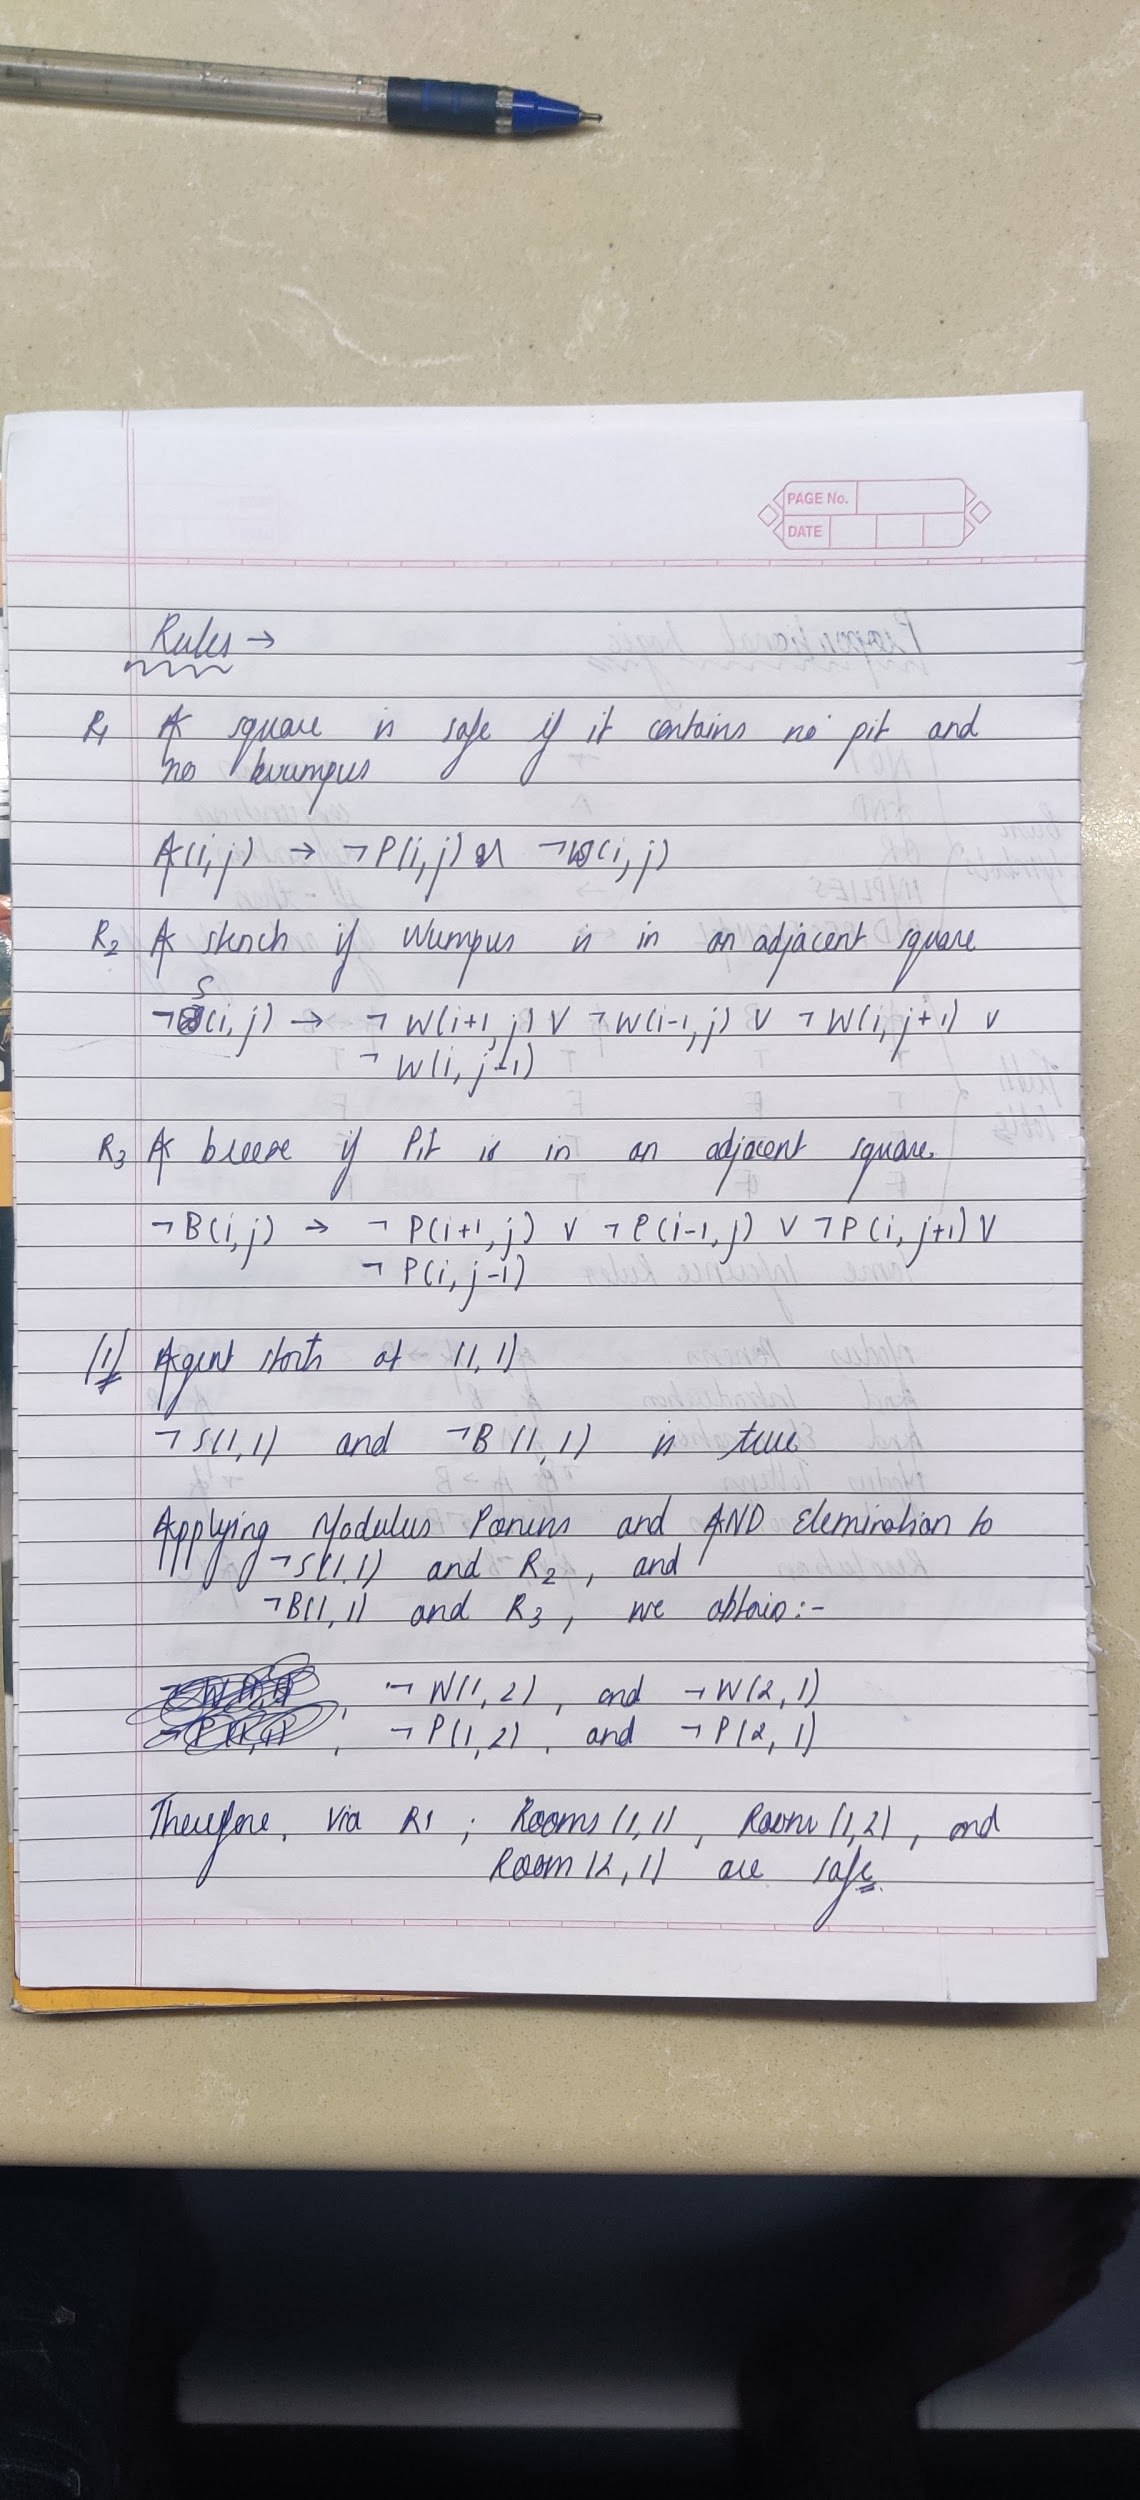 PAGE No.
DATE
Rules →
R1 A square is safe if it contains no pit and
no wumpus
A(i,j) → ¬P(i,j) ¬W(i,j)
R2 A stench if Wumpus is in an adjacent square
¬S(i,j) → ¬W(i+1,j) V ¬W(i-1,j) V ¬W(i,j+1) V
¬W(i,j-1)
R3 A breeze if Pit is in an adjacent square.
¬B(i,j) → ¬P(i+1,j) V ¬P(i-1,j) V ¬P(i,j+1) V
¬P(i,j-1)
(1) Agent starts at (1,1)
¬S(1,1) and ¬B(1,1) is true
Applying Modulus Ponens and AND Elemination to
¬S(1,1) and R2, and
¬B(1,1) and R3, we obtain:-
, ¬W(1,2), and ¬W(2,1)
, ¬P(1,2), and ¬P(2,1)
Therefore, via R1; Rooms(1,1), Room(1,2), and
Room(2,1) are safe.